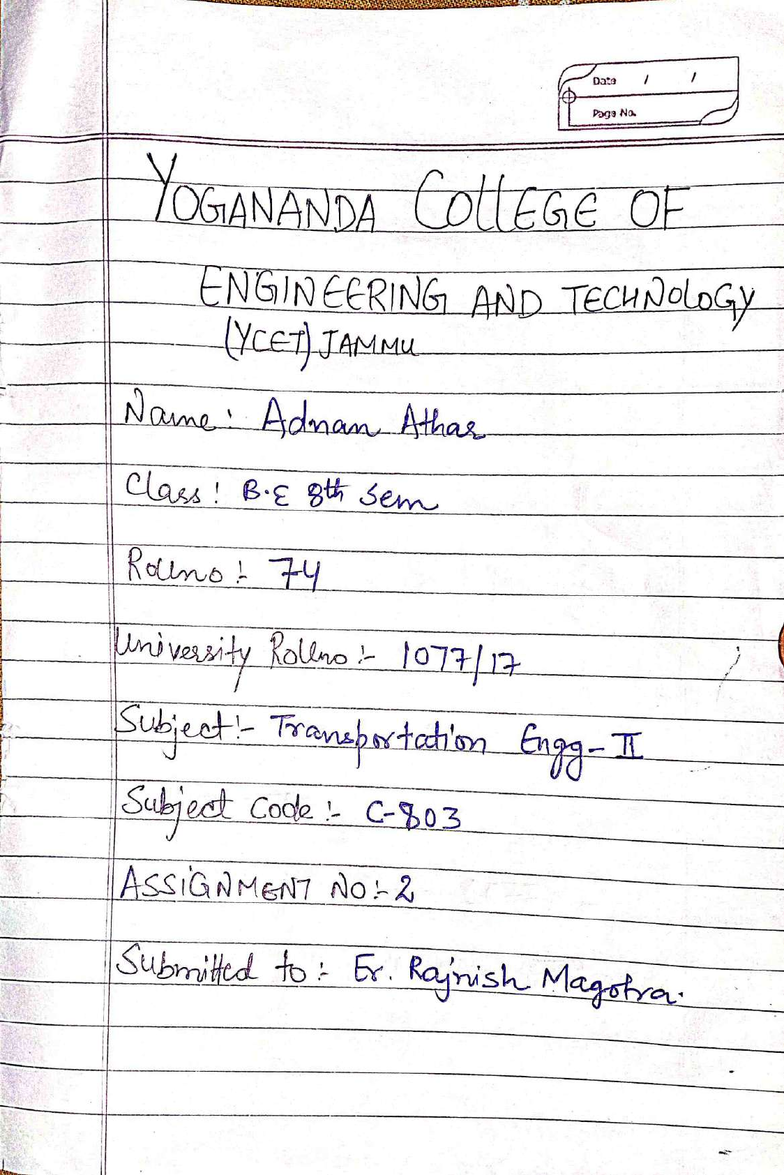 Date / /
Page No.
YOGANANDA COllEGE OF
ENGINEERING AND TECHNOLOGY
(YCET) JAMMU
Name: Adnan Athar
Class: B.E 8th Sem
Rollno:- 74
University Rollno:- 1077/17
Subject:- Transportation Engg-II
Subject Code:- C-803
ASSIGNMENT NO:-2
Submitted to:- Er. Rajnish Magotra.